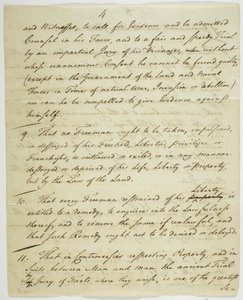 4
and Witnesses, to call for Evidence and be admitted
Counsel in his Favor, and to a fair and speedy Trial
by an impartial Jury of his Vicinage, without
whose unanimous Consent he cannot be found guilty,
(except in the Government of the land and Naval
Forces in Time of actual War, Invasion or Rebellion)
nor can he be compelled to give Evidence against
himself.
9. That no Freeman ought to be taken, imprisoned,
or disseized of his Freehold, Liberties, Privileges or
Franchises, or outlawed or exiled, or in any manner
destroyed or deprived of his Life, Liberty or Property,
but by the Law of the Land.
Liberty
10. That every Freeman restrained of his
is entitled to a remedy, to enquire into the Lawfulness
thereof, and to remove the same if unlawful, and
that such Remedy ought not to be denied or delayed.
11. That in Controversies respecting Property, and in
Suits between Man and Man, the ancient Trial
by Jury of Facts, where they arise, is one of the greatest